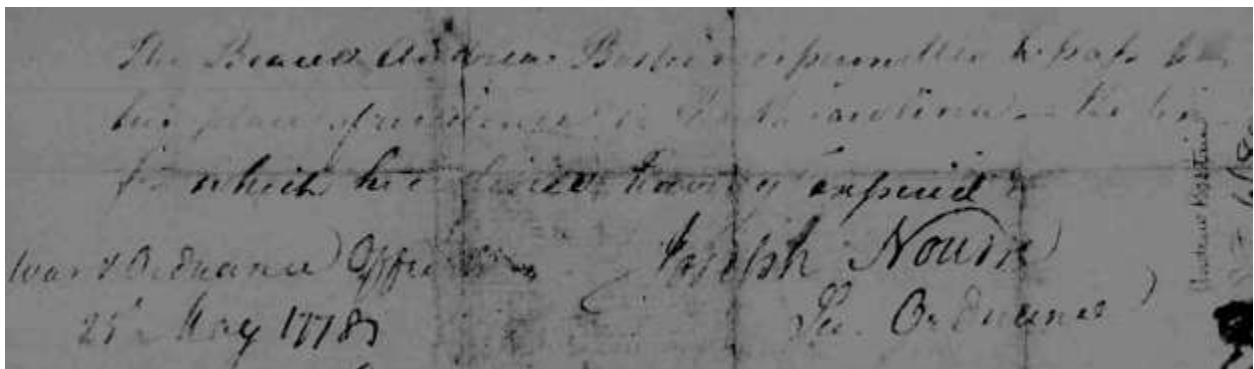 The Bearer Andrew Bostic is permitted to pass to
his place of residence in North Carolina the
for which he having expired
War & Ordnance Office
25th May 1778
Joseph Nourse
Sec. Ordnance